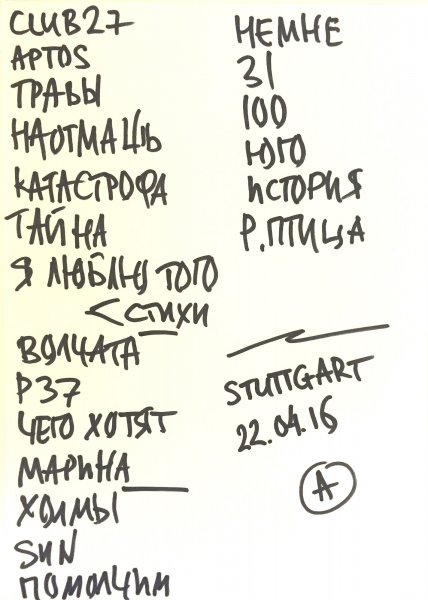 CLUB27
APTOS
ТРАВЫ
НАОТМАШЬ
КАТАСТРОФА
ТАЙНА
Я ЛЮБЛЮ ТОГО
< СТИХИ
ВОЛЧАТА
Р37
ЧЕГО ХОТЯТ
МАРИНА
ХОЛМЫ
SUN
ПОМОЛЧИМ
НЕМНЕ
31
100
ЮГО
ИСТОРИЯ
Р.ПТИЦА
STUTTGART
22.04.16
A